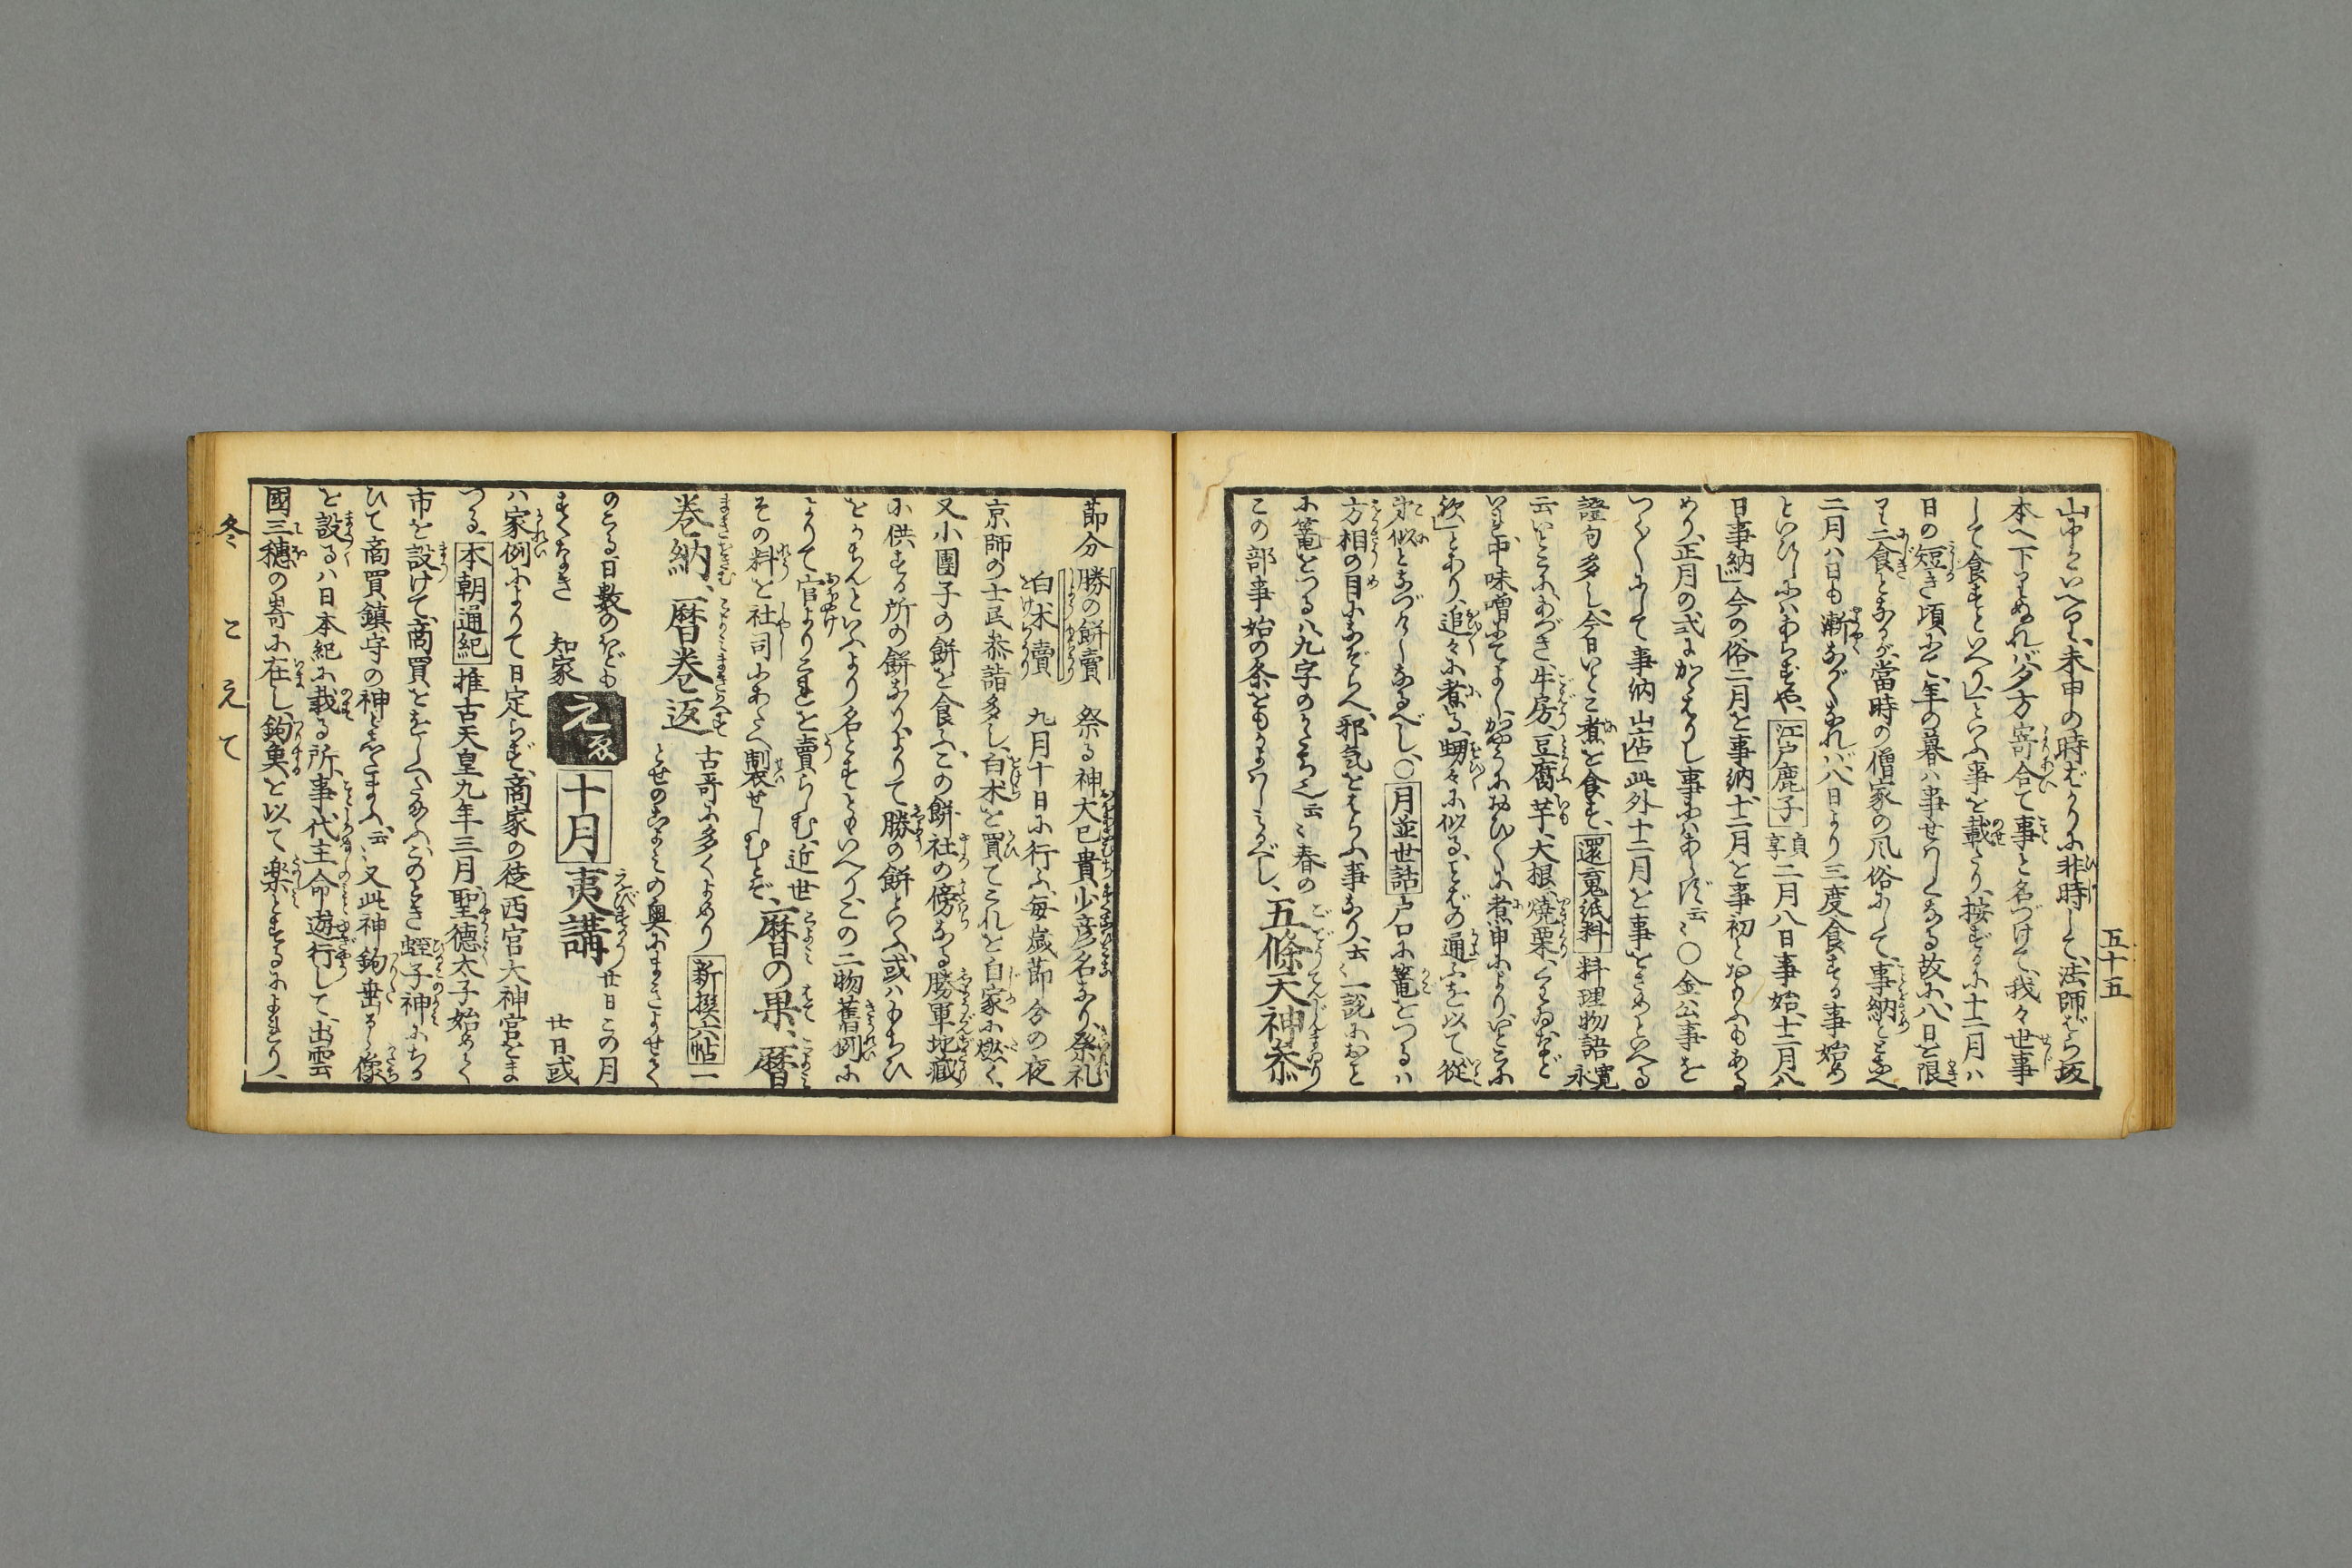 五十五
山中にいへり、未申の時ばかりに非時して、法師ばら坂
本へ下りぬれバ、夕方寄合て事と名づけて、我々世事
して食すといへり」といふ事を載たり、按ずるに十二月ハ
日の短き頃にて、年の暮ハ事せわしくなる故に、八日を限
りて二食となるが、當時の僧家の風俗にして、事納とと
二月ハ日も漸ながくなれバ、八日より三度食する事始め
といひしにハあらずや、江戸鹿子貞享二月八日事始、十二月八
日事納」今の俗二月を事納、十二月を事初と
めり、正月の式にかゝはりし事にハあらず云々○金公事を
つく〳〵にして事納 山店」此外十二月を事をさめといへる
證句多し、今日いとこ煮を食す、還魂紙料 料理物語寛永
云いとこに、あづき、牛房、豆腐、芋、大根、焼栗、くわゐなど
いれ、中味噌にてよし、かやうにおひ〳〵に煮申によりいとこ煮
歟」とあり、追々に煮る、甥々に似る、ことばの通ふを以て従
弟似となづけしなるべし、○月並世話 戸口に篭をつるハ
方相の目になぞらへ、邪気をはらふ事なり云々一説に
に篭をつるハ、九字のかたち也云々春の
この部事始の条ともかよハしみるべし、五條天神参
節分勝の餅賣 祭る神大已貴、少彦名なり、祭礼
白朮賣 九月十日に行ふ、毎歳節分の夜
京師の士民参詣多し、白朮を買てこれを自家に燃く、
又小團子の餅を食ふ、この餅社の傍なる勝軍地蔵
に供する所の餅なり、よりて勝の餅といふ、或ハもちひ
をかちんといふより名とすともいへり、この二物舊例に
よりて官よりこれを賣らしむ、近世
その料を社司にあたへ製せしむとぞ、暦の果、暦
巻納、暦巻返 古哥に多くよめり新撰六帖一
とせのこよみの奥にまきよせて
のこる日数のほども
すくなき 知家 えゑ 十月 夷講 廿日この月 廿日或
ハ家例によりて日定らず、商家の徒西宮大神宮をま
つる、本朝通紀 推古天皇九年三月聖徳太子始めて
市を設けて、商買をなさしめたまふ、このとき蛭子神にちか
ひて商買鎮守の神としたまふ云々又此神鉤垂るゝ像
を設るハ日本紀に載る所、事代主命遊行して、出雲
國三穂の﨑に在し釣魚を以て楽とするによれり、
冬 こ え て